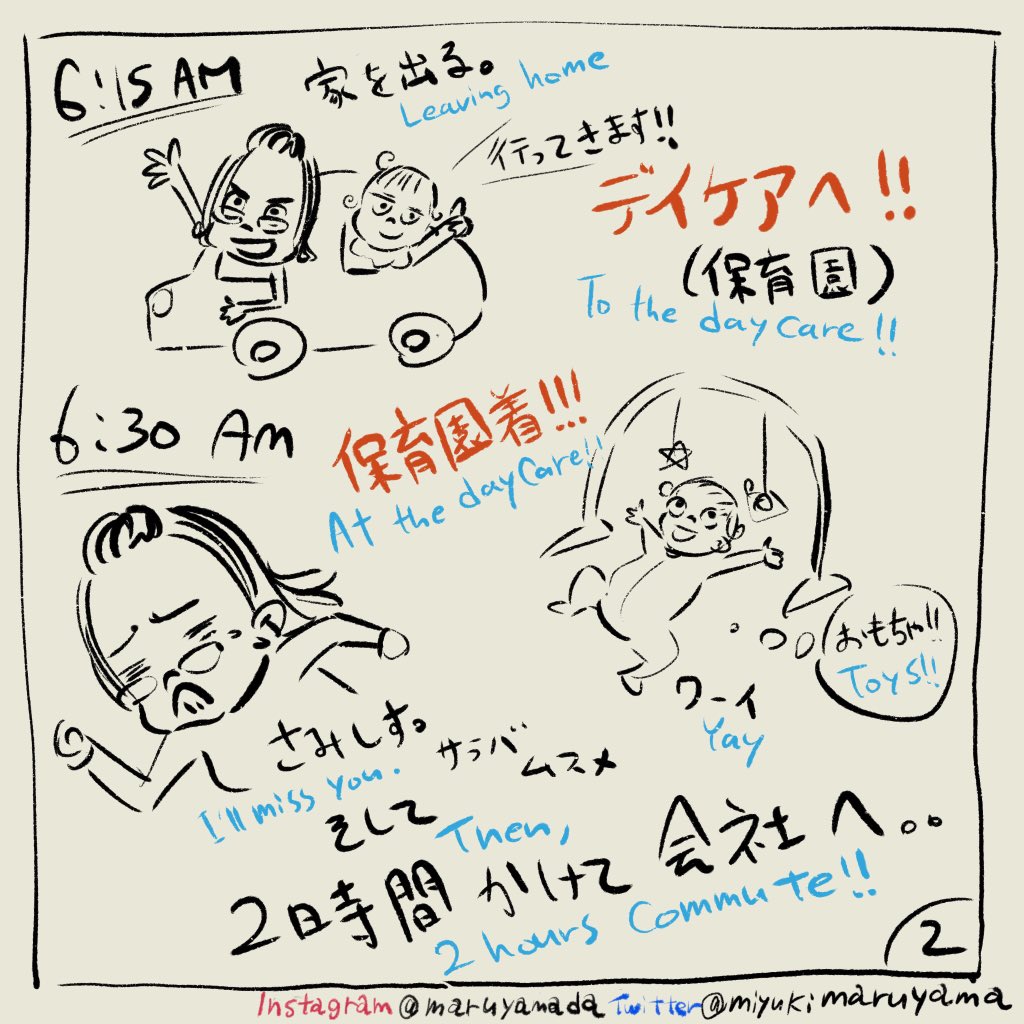 6:15 AM 家を出る。
Leaving home
行ってきます!!
デイケアへ!!
(保育園)
To the day care!!
6:30 AM 保育園着!!!
At the day care!!
おもちゃ!!
Toys!!
ワーイ
Yay
さみしす。
I'll miss you.
サラバ
ムスメ
そして
Then,
2時間かけて会社へ..
2 hours commute!!
2
Instagram @maruyamada Twitter @miyukimaruyama